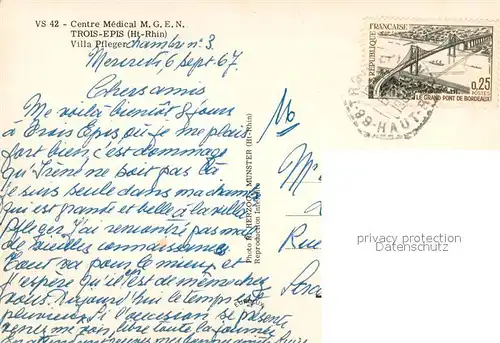 VS 42 - Centre Médical M. G. E. N.
TROIS-EPIS (Ht-Rhin)
Villa Pfleger chambre n° 3
Mercredi 6 Sept 67
Chers amis
Me voilà bientôt 8 jours
à Trois Epis où je me plais
fort bien, c'est dommage
qu'Irène ne soit pas là
je suis seule dans ma chambre
qui est grande et belle à la villa
Pfleger. j'ai rencontré pas mal
de vieilles connaissances
Tout va pour le mieux et
j'espère qu'il en est de même chez
vous. Aujourd'hui le temps est
pluvieux. Si l'occasion se présente
venez me voir, libre toute la journée
RÉPUBLIQUE FRANÇAISE
0,25
POSTES
LE GRAND PONT DE BORDEAUX
HAUT
Photo R. HERZOG, MUNSTER (Ht-Rhin)
Reproduction Interdite
M
Rue
privacy protection
Datenschutz